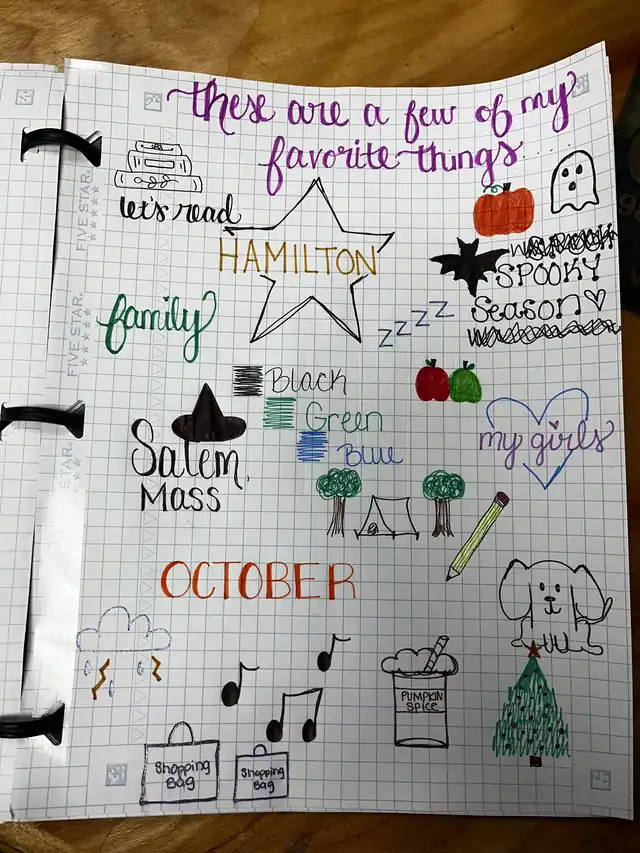 these are a few of my
favorite things......
let's read
HAMILTON
SPOOKY
SEASON
family
ZZZZ
Black
Green
Blue
my girls
Salem,
Mass
OCTOBER
PUMPKIN
SPICE
Shopping
Bag
Shopping
Bag
FIVE STAR.
FIVE STAR.
FIVE STAR.